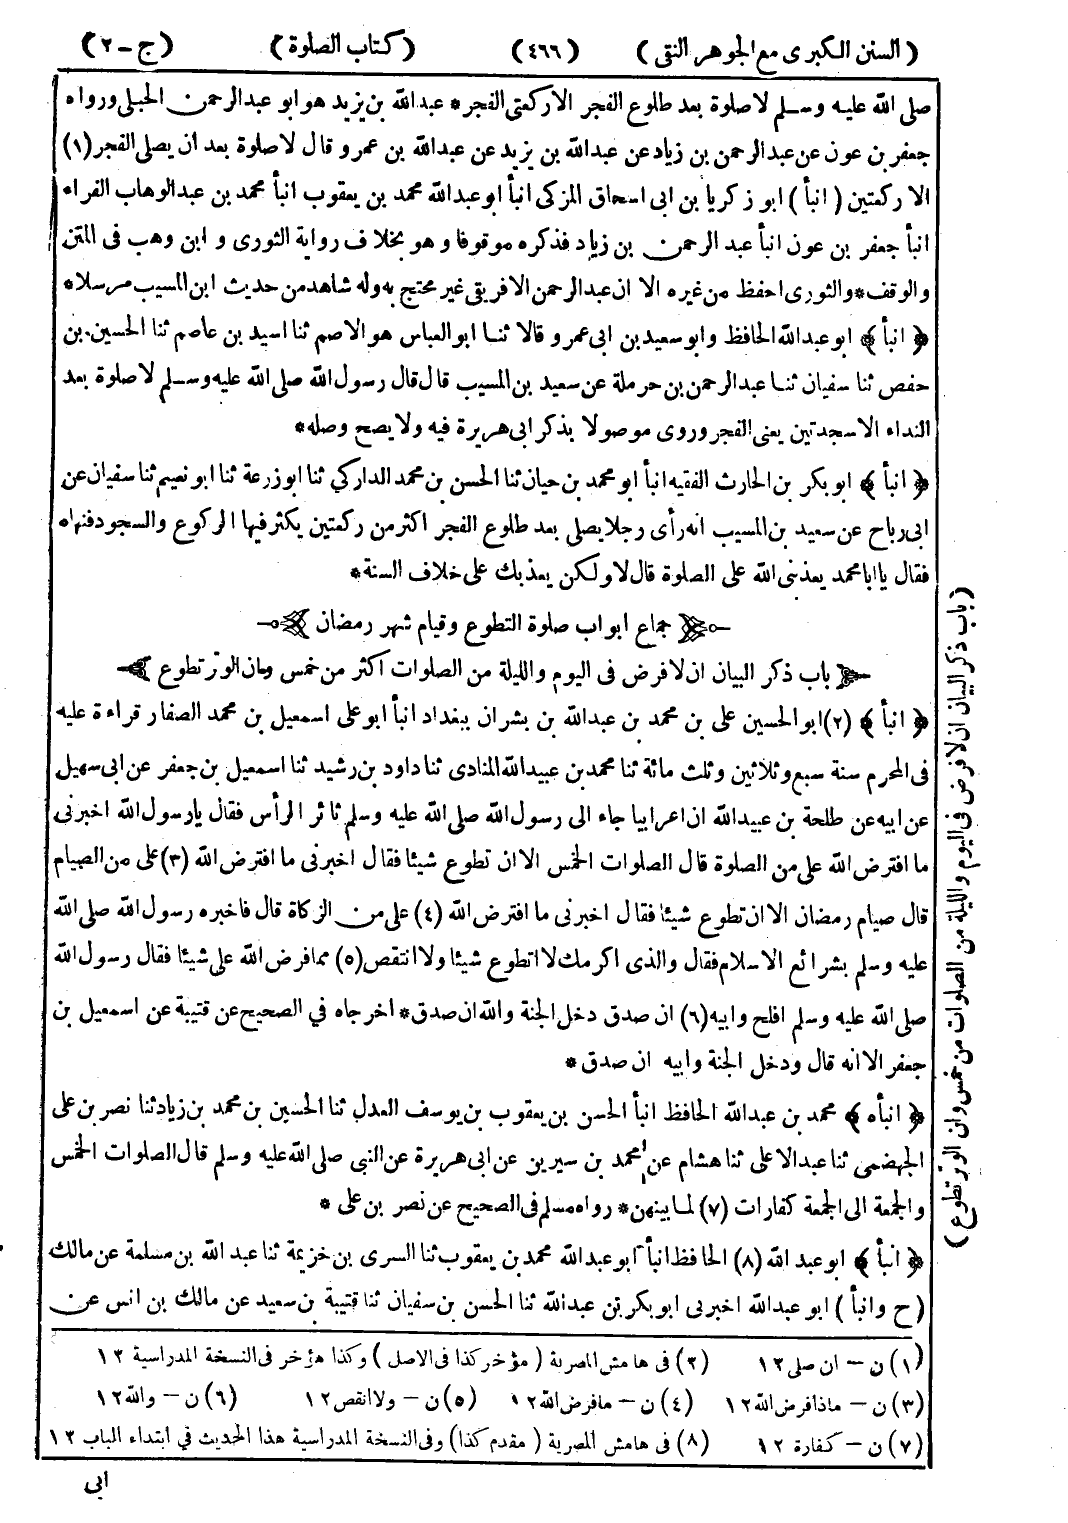 (السنن الكبرى مع الجوهر النقى) (٤٦٦) (كتاب الصلوة) (ج-٢)
صلى الله عليه وسلم لا صلوة بعد طلوع الفجر الا ركعتى الفجر * عبد الله بن يزيد هو ابو عبد الرحمن الحبلى ورواه
جعفر بن عون عن عبد الرحمن بن زياد عن عبد الله بن يزيد عن عبد الله بن عمرو قال لا صلوة بعد ان يصلى الفجر (١)
الا ركعتين (انبأ) ابو زكريا بن ابى اسحاق المزكى انبأ ابو عبد الله محمد بن يعقوب انبأ محمد بن عبد الوهاب الفراء
انبأ جعفر بن عون انبأ عبد الرحمن بن زياد فذكره موقوفا وهو بخلاف رواية الثورى وابن وهب فى المتن
والوقف * والثورى احفظ من غيره الا ان عبد الرحمن الافريقى غير محتج به وله شاهد من حديث ابن المسيب مرسلا *
﴿انبأ﴾ ابو عبد الله الحافظ وابو سعيد بن ابى عمرو قالا ثنا ابو العباس هو الاصم ثنا اسيد بن عاصم ثنا الحسين بن
حفص ثنا سفيان ثنا عبد الرحمن بن حرملة عن سعيد بن المسيب قال قال رسول الله صلى الله عليه وسلم لا صلوة بعد
النداء الا سجدتين يعنى الفجر وروى موصولا بذكر ابى هريرة فيه ولا يصح وصله *
﴿انبأ﴾ ابو بكر بن الحارث الفقيه انبأ ابو محمد بن حيان ثنا الحسن بن محمد الداركي ثنا ابو زرعة ثنا ابو نعيم ثنا سفيان عن
ابى رباح عن سعيد بن المسيب انه رأى رجلا يصلى بعد طلوع الفجر اكثر من ركعتين يكثر فيها الركوع والسجود فنهاه
فقال يا ابا محمد يعذبنى الله على الصلوة قال لا ولكن يعذبك على خلاف السنة *
جماع ابواب صلوة التطوع وقيام شهر رمضان
باب ذكر البيان ان لا فرض فى اليوم والليلة من الصلوات اكثر من خمس وان الوتر تطوع
﴿انبأ﴾ (٢) ابو الحسين على بن محمد بن عبد الله بن بشران ببغداد انبأ ابو على اسمعيل بن محمد الصفار قراءة عليه
فى المحرم سنة سبع وثلاثين وثلث مائة ثنا محمد بن عبيد الله المنادى ثنا داود بن رشيد ثنا اسمعيل بن جعفر عن ابى سهيل
عن ابيه عن طلحة بن عبيد الله ان اعرابيا جاء الى رسول الله صلى الله عليه وسلم ثائر الرأس فقال يا رسول الله اخبرنى
ما افترض الله على من الصلوة قال الصلوات الخمس الا ان تطوع شيئا فقال اخبرنى ما افترض الله (٣) على من الصيام
قال صيام رمضان الا ان تطوع شيئا فقال اخبرنى ما افترض الله (٤) على من الزكاة قال فاخبره رسول الله صلى الله
عليه وسلم بشرائع الاسلام فقال والذى اكرمك لا اتطوع شيئا ولا انتقص (٥) مما فرض الله على شيئا فقال رسول الله
صلى الله عليه وسلم افلح وابيه (٦) ان صدق دخل الجنة والله ان صدق * اخرجاه في الصحيح عن قتيبة عن اسمعيل بن
جعفر الا انه قال ودخل الجنة وابيه ان صدق *
﴿انبأه﴾ محمد بن عبد الله الحافظ انبأ الحسن بن يعقوب بن يوسف العدل ثنا الحسين بن محمد بن زياد ثنا نصر بن على
الجهضمى ثنا عبد الاعلى ثنا هشام عن محمد بن سيرين عن ابى هريرة عن النبى صلى الله عليه وسلم قال الصلوات الخمس
والجمعة الى الجمعة كفارات (٧) لما بينهن * رواه مسلم فى الصحيح عن نصر بن على *
﴿انبأ﴾ ابو عبد الله (٨) الحافظ انبأ ابو عبد الله محمد بن يعقوب ثنا السرى بن خزيمة ثنا عبد الله بن مسلمة عن مالك
(ح وانبأ) ابو عبد الله اخبرنى ابو بكر بن عبد الله ثنا الحسن بن سفيان ثنا قتيبة بن سعيد عن مالك بن انس عن
(باب ذكر البيان ان لا فرض فى اليوم والليلة من الصلوات من خمس وان الوتر تطوع)
(١) ن - ان صلى ١٢ (٢) فى هامش المصرية (مؤخر كذا فى الاصل) وكذا مؤخر فى النسخة المدراسية ١٢
(٣) ن - ماذا فرض الله ١٢ (٤) ن - ما فرض الله ١٢ (٥) ن - ولا انقص ١٢ (٦) ن - والله ١٢
(٧) ن - كفارة ١٢ (٨) فى هامش المصرية (مقدم كذا) وفى النسخة المدراسية هذا الحديث في ابتداء الباب ١٢
ابى